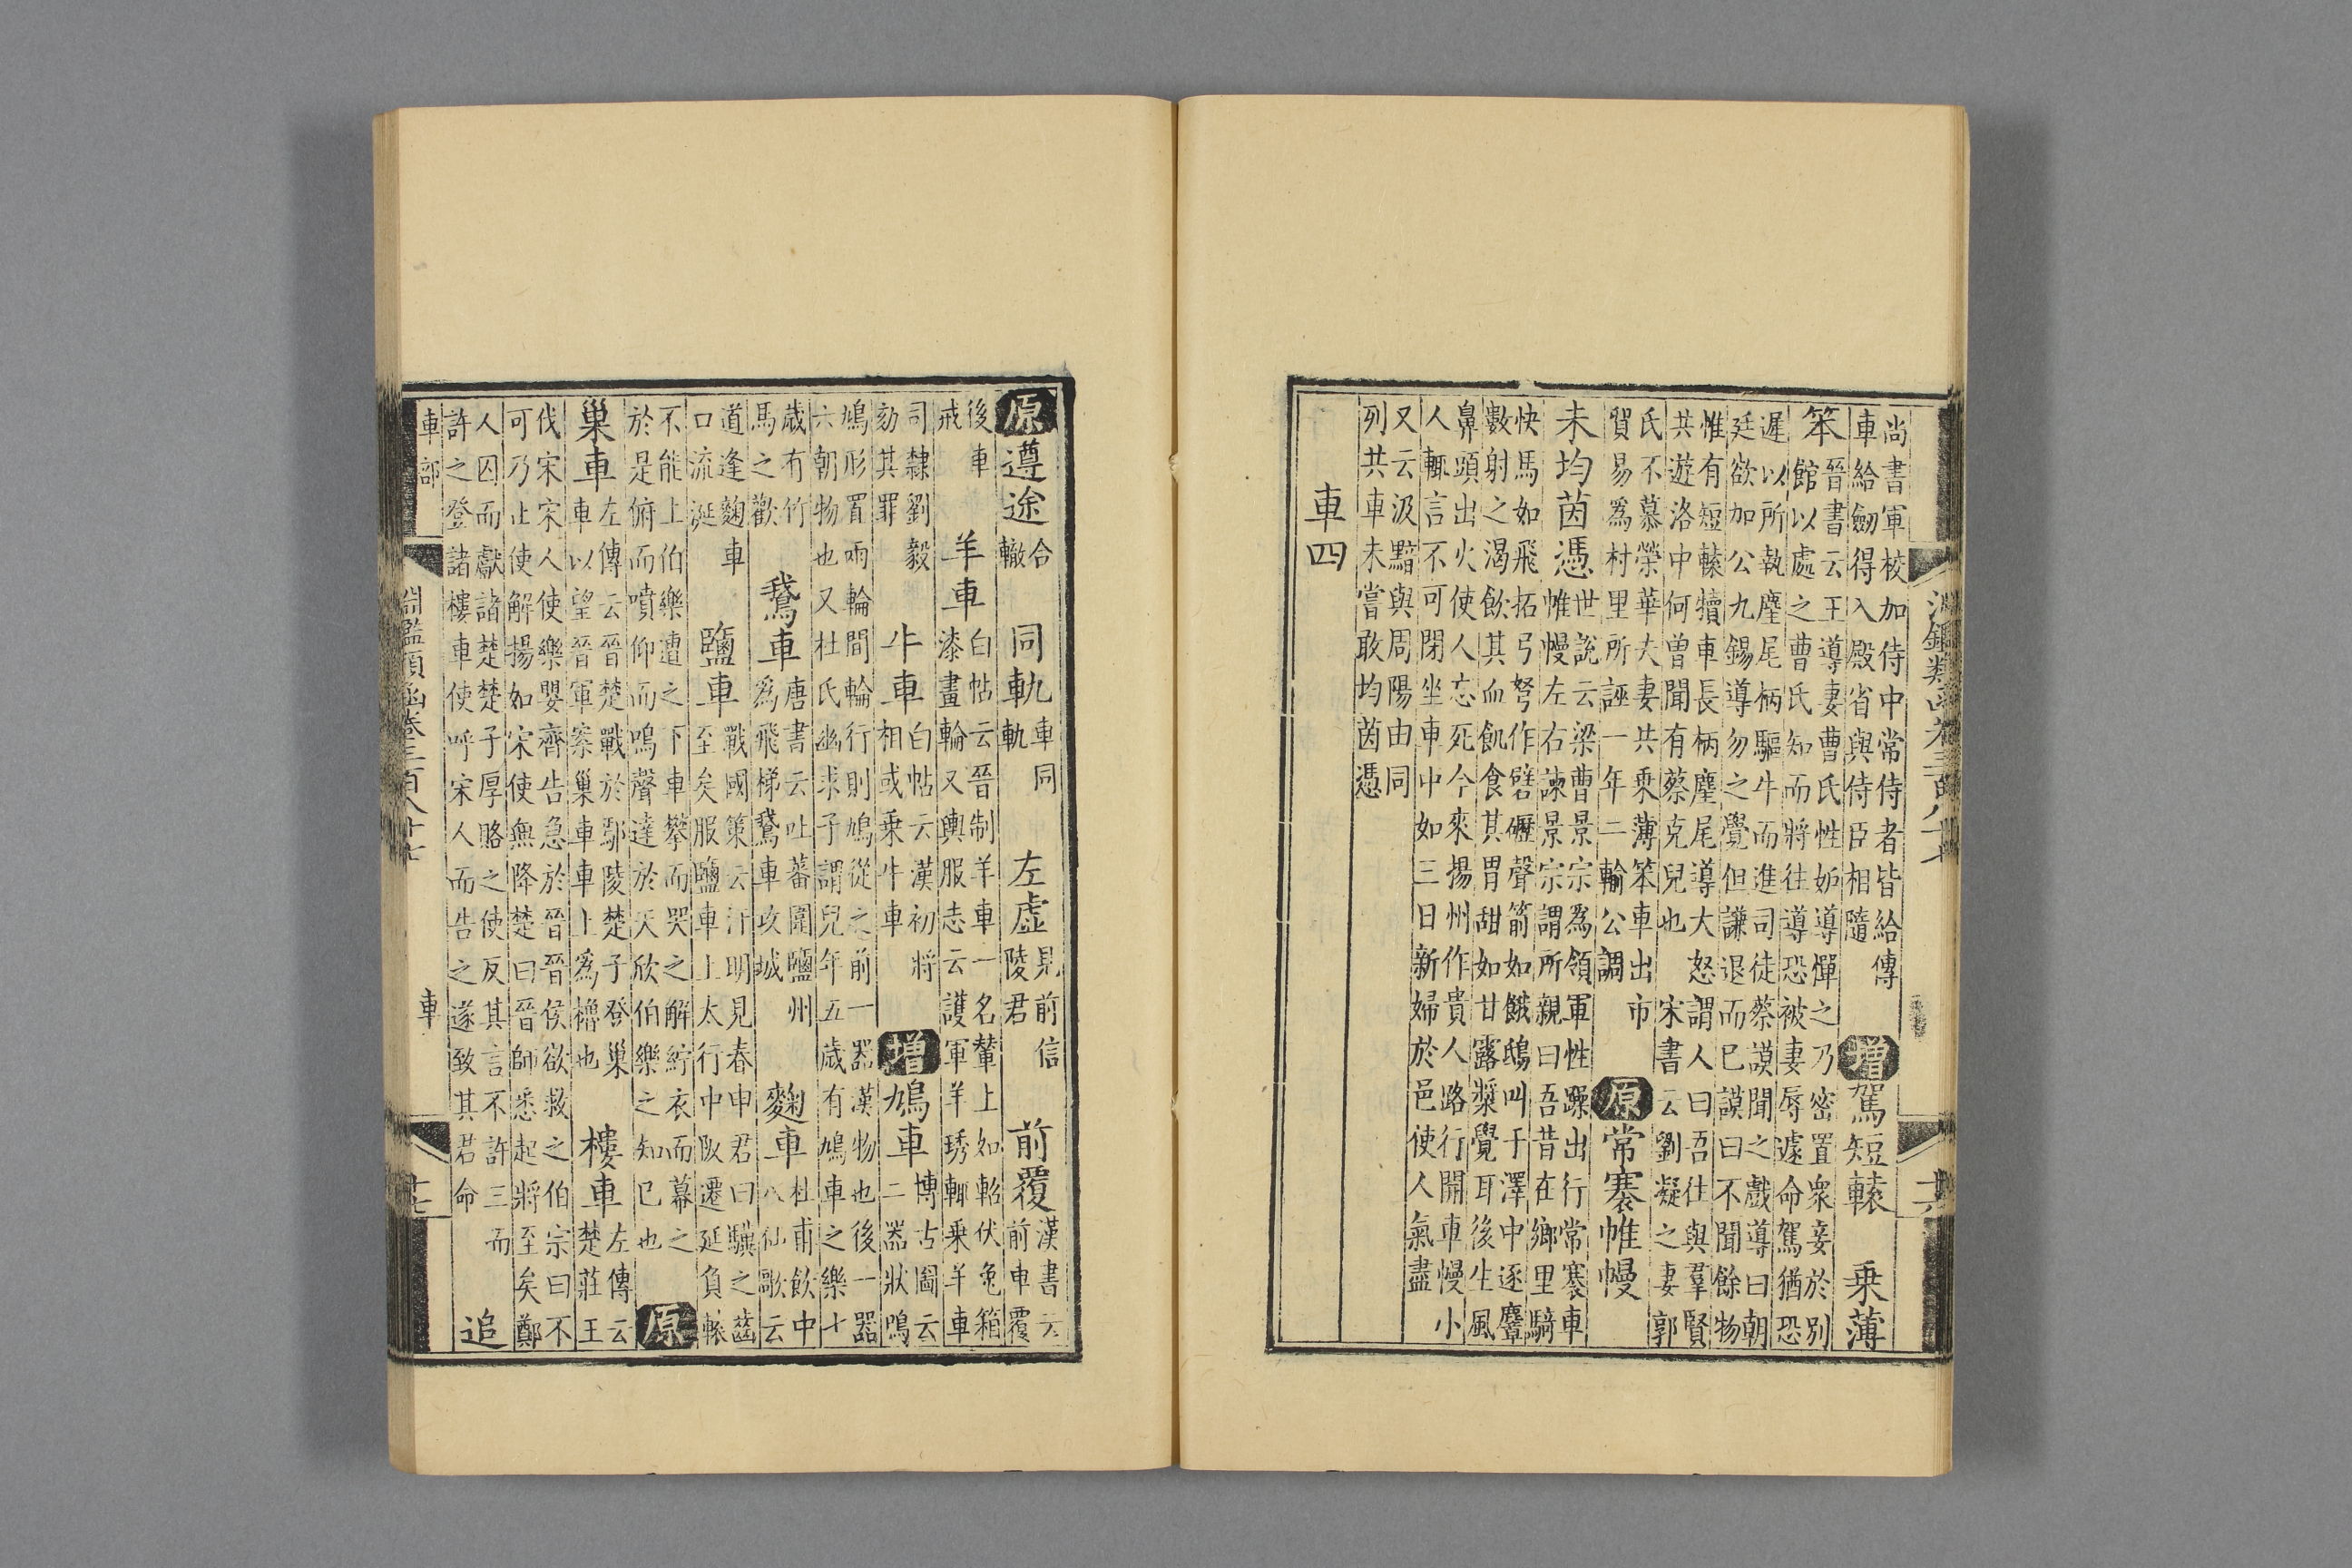 淵鑑類函卷三百八十七
尚書軍校加侍中常侍者皆給傳
車給劒得入殿省與侍臣相隨
增 駕短轅 乘薄
笨
晉書云王導妻曹氏性妬導憚之乃密置衆妾於別
館以處之曹氏知而將往導恐被妻辱遽命駕猶恐
遲以所執麈尾柄驅牛而進司徒蔡謨聞之戲導曰朝
廷欲加公九錫導勿之覺但謙退而已謨曰不聞餘物
惟有短轅犢車長柄麈尾導大怒謂人曰吾往與羣賢
共遊洛中何曾聞有蔡克兒也 宋書云劉凝之妻郭
氏不慕榮華夫妻共乘薄笨車出市
貿易爲村里所誣一年二輸公調
原 常褰帷幔
未均茵憑
世說云梁曹景宗為領軍性躁出行常褰車
帷幔左右諫景宗謂所親曰吾昔在鄉里騎
快馬如飛拓弓弩作礔礰聲箭如餓鴟叫于澤中逐麞
數射之渴飲其血飢食其胃甜如甘露漿覺耳後生風
鼻頭出火使人忘死今來揚州作貴人路行開車幔小
人輒言不可閉坐車中如三日新婦於邑使人氣盡
又云汲黯與周陽由同
列共車未嘗敢均茵憑
車四
原 遵途
合
轍
同軌
車同
軌
左虛
見前信
陵君
前覆
漢書云
前車覆
後車
戒
羊車
白帖云晉制羊車一名輦上如軺伏兔箱
漆畫輪又輿服志云護軍羊琇輒乘羊車
司隸劉毅
劾其罪
牛車
白帖云漢初將
相或乘牛車
增 鳩車
博古圖云
二器狀鳴
鳩形置兩輪間輪行則鳩從之前一器漢物也後一器
六朝物也又杜氏幽求子謂兒年五歲有鳩車之樂七
歲有竹
馬之歡
鵞車
唐書云吐蕃圍鹽州
爲飛梯鵞車攻城
麴車
杜甫飲中
八仙歌云
道逢麴車
口流涎
鹽車
戰國策云汗明見春申君曰驥之齒
至矣服鹽車上太行中阪遷延負轅
不能上伯樂遭之下車攀而哭之解紵衣而冪之
於是俯而噴仰而鳴聲達於天欣伯樂之知已也
原
巢車
左傳云晉楚戰於鄢陵楚子登巢
車以望晉軍寨巢車車上爲櫓也
樓車
左傳云
楚莊王
伐宋宋人使樂嬰齊告急於晉晉侯欲救之伯宗曰不
可乃止使解揚如宋使無降楚曰晉師悉起將至矣鄭
人囚而獻諸楚楚子厚賂之使反其言不許三而
許之登諸樓車使呼宋人而告之遂致其君命
追
車部
淵鑑類函卷三百八十七
車